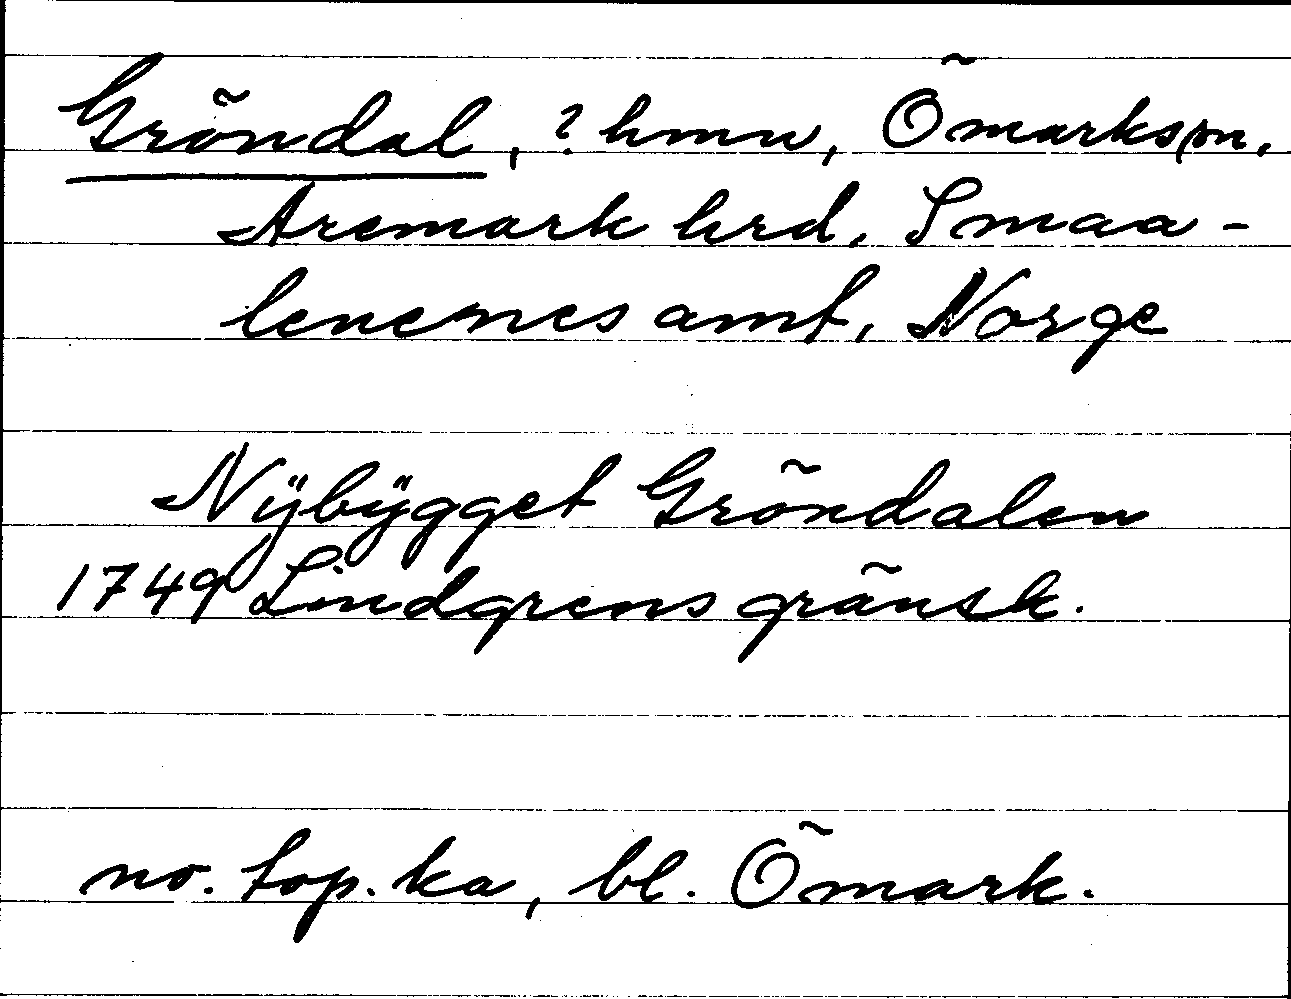 Gröndal, ? hmn, Ömark sn.
Aremark hrd, Smaa-
lenenes amt, Norge
Nÿbÿgget Gröndalen
1749 Lindgrens gränsk.
no. top. ka, bl. Ömark.